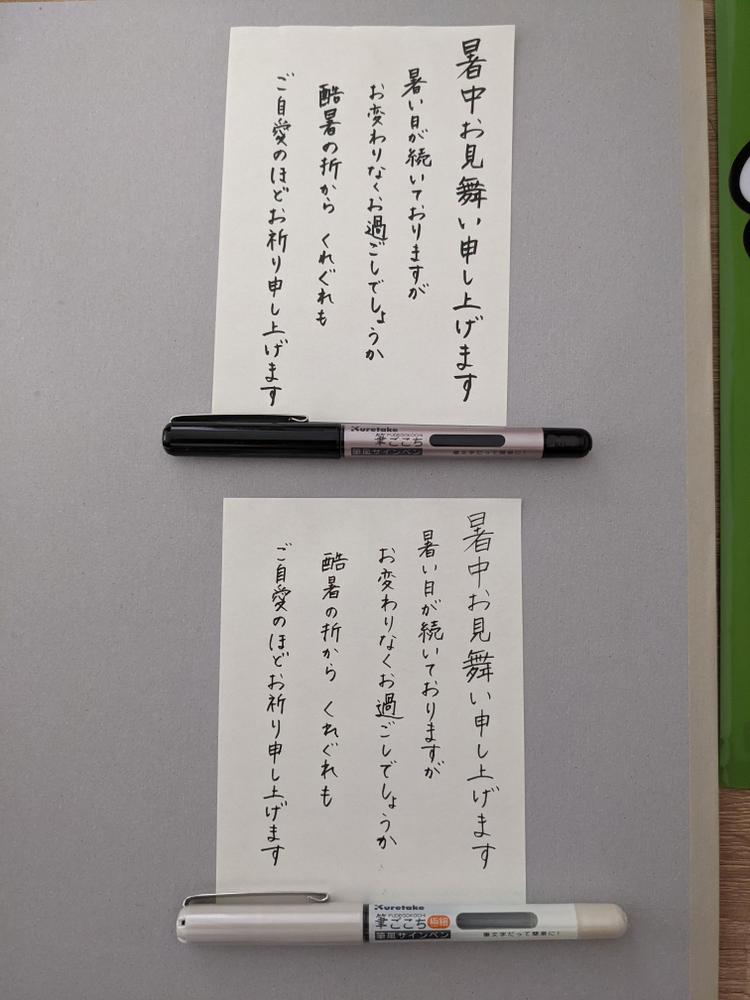 暑中お見舞い申し上げます
暑い日が続いておりますが
お変わりなくお過ごしでしょうか
酷暑の折から くれぐれも
ご自愛のほどお祈り申し上げます
Kuretake
FUDEGOKOCHI
筆ごこち
筆風サインペン
筆文字だって簡単に!
暑中お見舞い申し上げます
暑い日が続いておりますが
お変わりなくお過ごしでしょうか
酷暑の折から くれぐれも
ご自愛のほどお祈り申し上げます
Kuretake
FUDEGOKOCHI
筆ごこち 極細
筆風サインペン
筆文字だって簡単に!